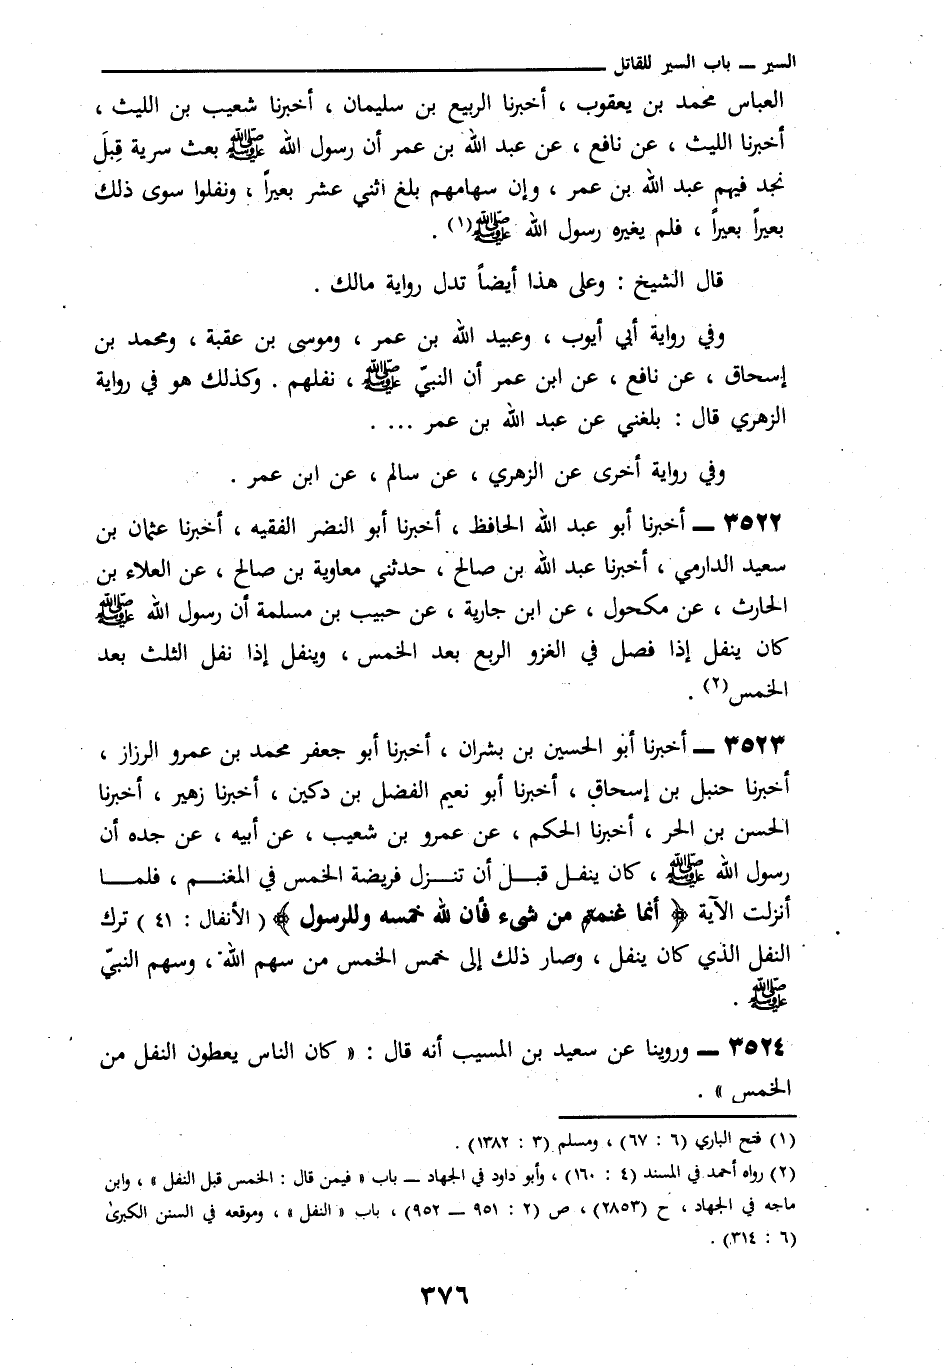 السير — باب السير للقاتل
العباس محمد بن يعقوب ، أخبرنا الربيع بن سليمان ، أخبرنا شعيب بن الليث ،
أخبرنا الليث ، عن نافع ، عن عبد الله بن عمر أن رسول الله ﷺ بعث سرية قِبلَ
نجد فيهم عبد الله بن عمر ، وإن سهامهم بلغ اثني عشر بعيراً ، ونفلوا سوى ذلك
بعيراً بعيراً ، فلم يغيره رسول الله ﷺ(١) .
قال الشيخ : وعلى هذا أيضاً تدل رواية مالك .
وفي رواية أبي أيوب ، وعبيد الله بن عمر ، وموسى بن عقبة ، ومحمد بن
إسحاق ، عن نافع ، عن ابن عمر أن النبيّ ﷺ ، نفلهم . وكذلك هو في رواية
الزهري قال : بلغني عن عبد الله بن عمر ... .
وفي رواية أخرى عن الزهري ، عن سالم ، عن ابن عمر .
٣٥٢٢ — أخبرنا أبو عبد الله الحافظ ، أخبرنا أبو النضر الفقيه ، أخبرنا عثمان بن
سعيد الدارمي ، أخبرنا عبد الله بن صالح ، حدثني معاوية بن صالح ، عن العلاء بن
الحارث ، عن مكحول ، عن ابن جارية ، عن حبيب بن مسلمة أن رسول الله ﷺ
كان ينفل إذا فصل في الغزو الربع بعد الخمس ، وينفل إذا نفل الثلث بعد
الخمس(٢) .
٣٥٢٣ — أخبرنا أبو الحسين بن بشران ، أخبرنا أبو جعفر محمد بن عمرو الرزاز ،
أخبرنا حنبل بن إسحاق ، أخبرنا أبو نعيم الفضل بن دكين ، أخبرنا زهير ، أخبرنا
الحسن بن الحر ، أخبرنا الحكم ، عن عمرو بن شعيب ، عن أبيه ، عن جده أن
رسول الله ﷺ ، كان ينفل قبل أن تنزل فريضة الخمس في المغنم ، فلما
أنزلت الآية ﴿ أنما غنمتم من شيء فأن لله خمسه وللرسول ﴾ ( الأنفال : ٤١ ) ترك
النفل الذي كان ينفل ، وصار ذلك إلى خمس الخمس من سهم الله ، وسهم النبيّ
ﷺ .
٣٥٢٤ — وروينا عن سعيد بن المسيب أنه قال : « كان الناس يعطون النفل من
الخمس » .
(١) فتح الباري (٦ : ٦٧) ، ومسلم (٣ : ١٣٨٢) .
(٢) رواه أحمد في المسند (٤ : ١٦٠) ، وأبو داود في الجهاد — باب « فيمن قال : الخمس قبل النفل » ، وابن
ماجه في الجهاد ، ح (٢٨٥٣) ، ص (٢ : ٩٥١ — ٩٥٢) ، باب « النفل » ، وموقعه في السنن الكبرىٰ
(٦ : ٣١٤) .
٣٧٦